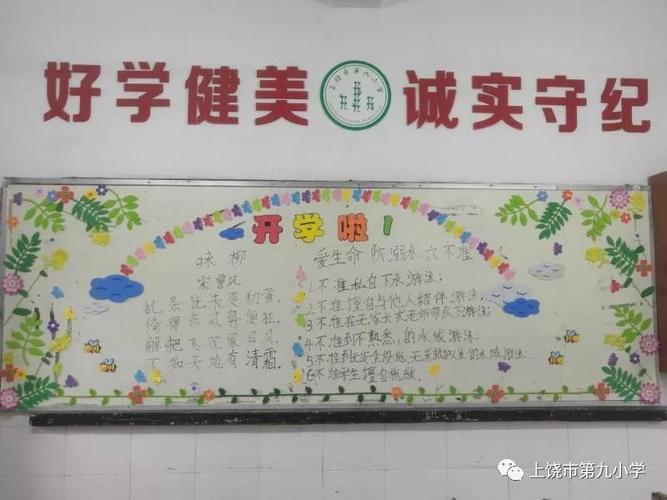 好学健美 诚实守纪
上饶市第九小学
开学啦!
咏 柳
宋曾巩
乱条犹未变初黄,
倚得东风势便狂
解把飞花蒙日月,
不知天地有清霜.
爱生命 防溺水 六不准
1.不准私自下水游泳;
2.不准擅自与他人结伴游泳;
3.不准在无家长或老师带队下游泳;
4.不准到不熟悉的水域游泳;
5.不准到无安全设施、无救护人员的水域游泳
6.不准学生擅自施救.
上饶市第九小学